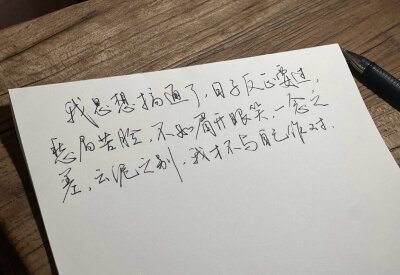 我思想搞通了,日子反正要过,
愁眉苦脸,不如眉开眼笑,一念之
差,云泥之别,我才不与自己作对.